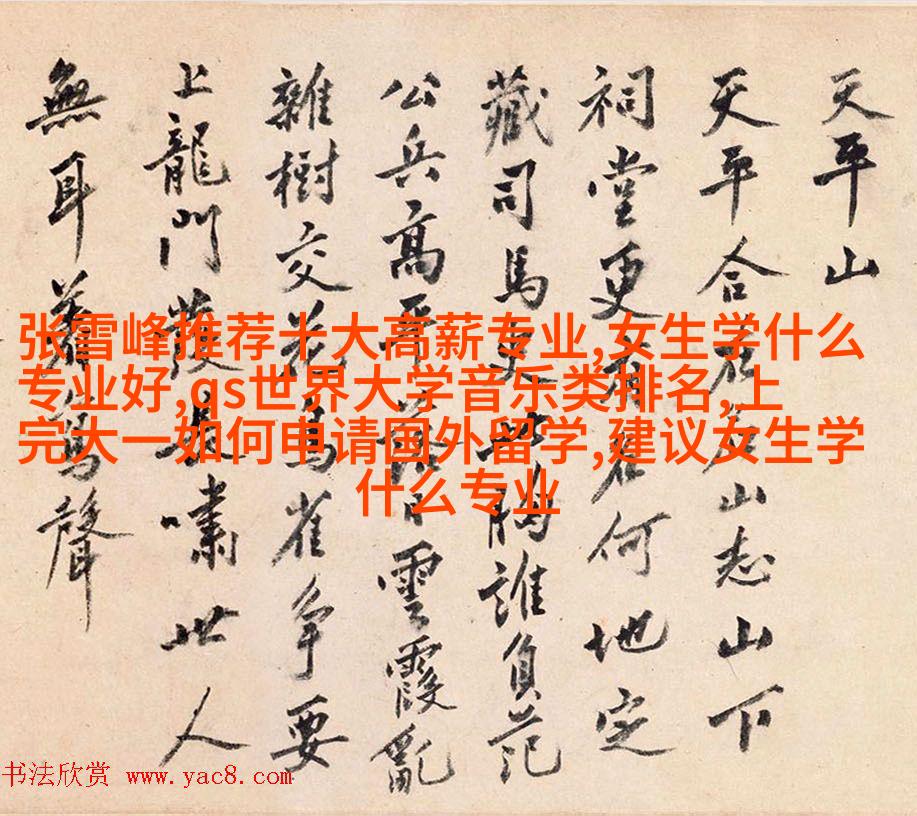 天平山
天平合山志山下
祠堂更何地定
藏司馬誰負范
公兵高雲霞亂
雜樹交雀爭要
上龍門嘯世人
無耳聲
张雪峰推荐十大高薪专业,女生学什么
专业好,qs世界大学音乐类排名,上
完大一如何申请国外留学,建议女生学
什么专业
书法欣赏 www.yac8.com